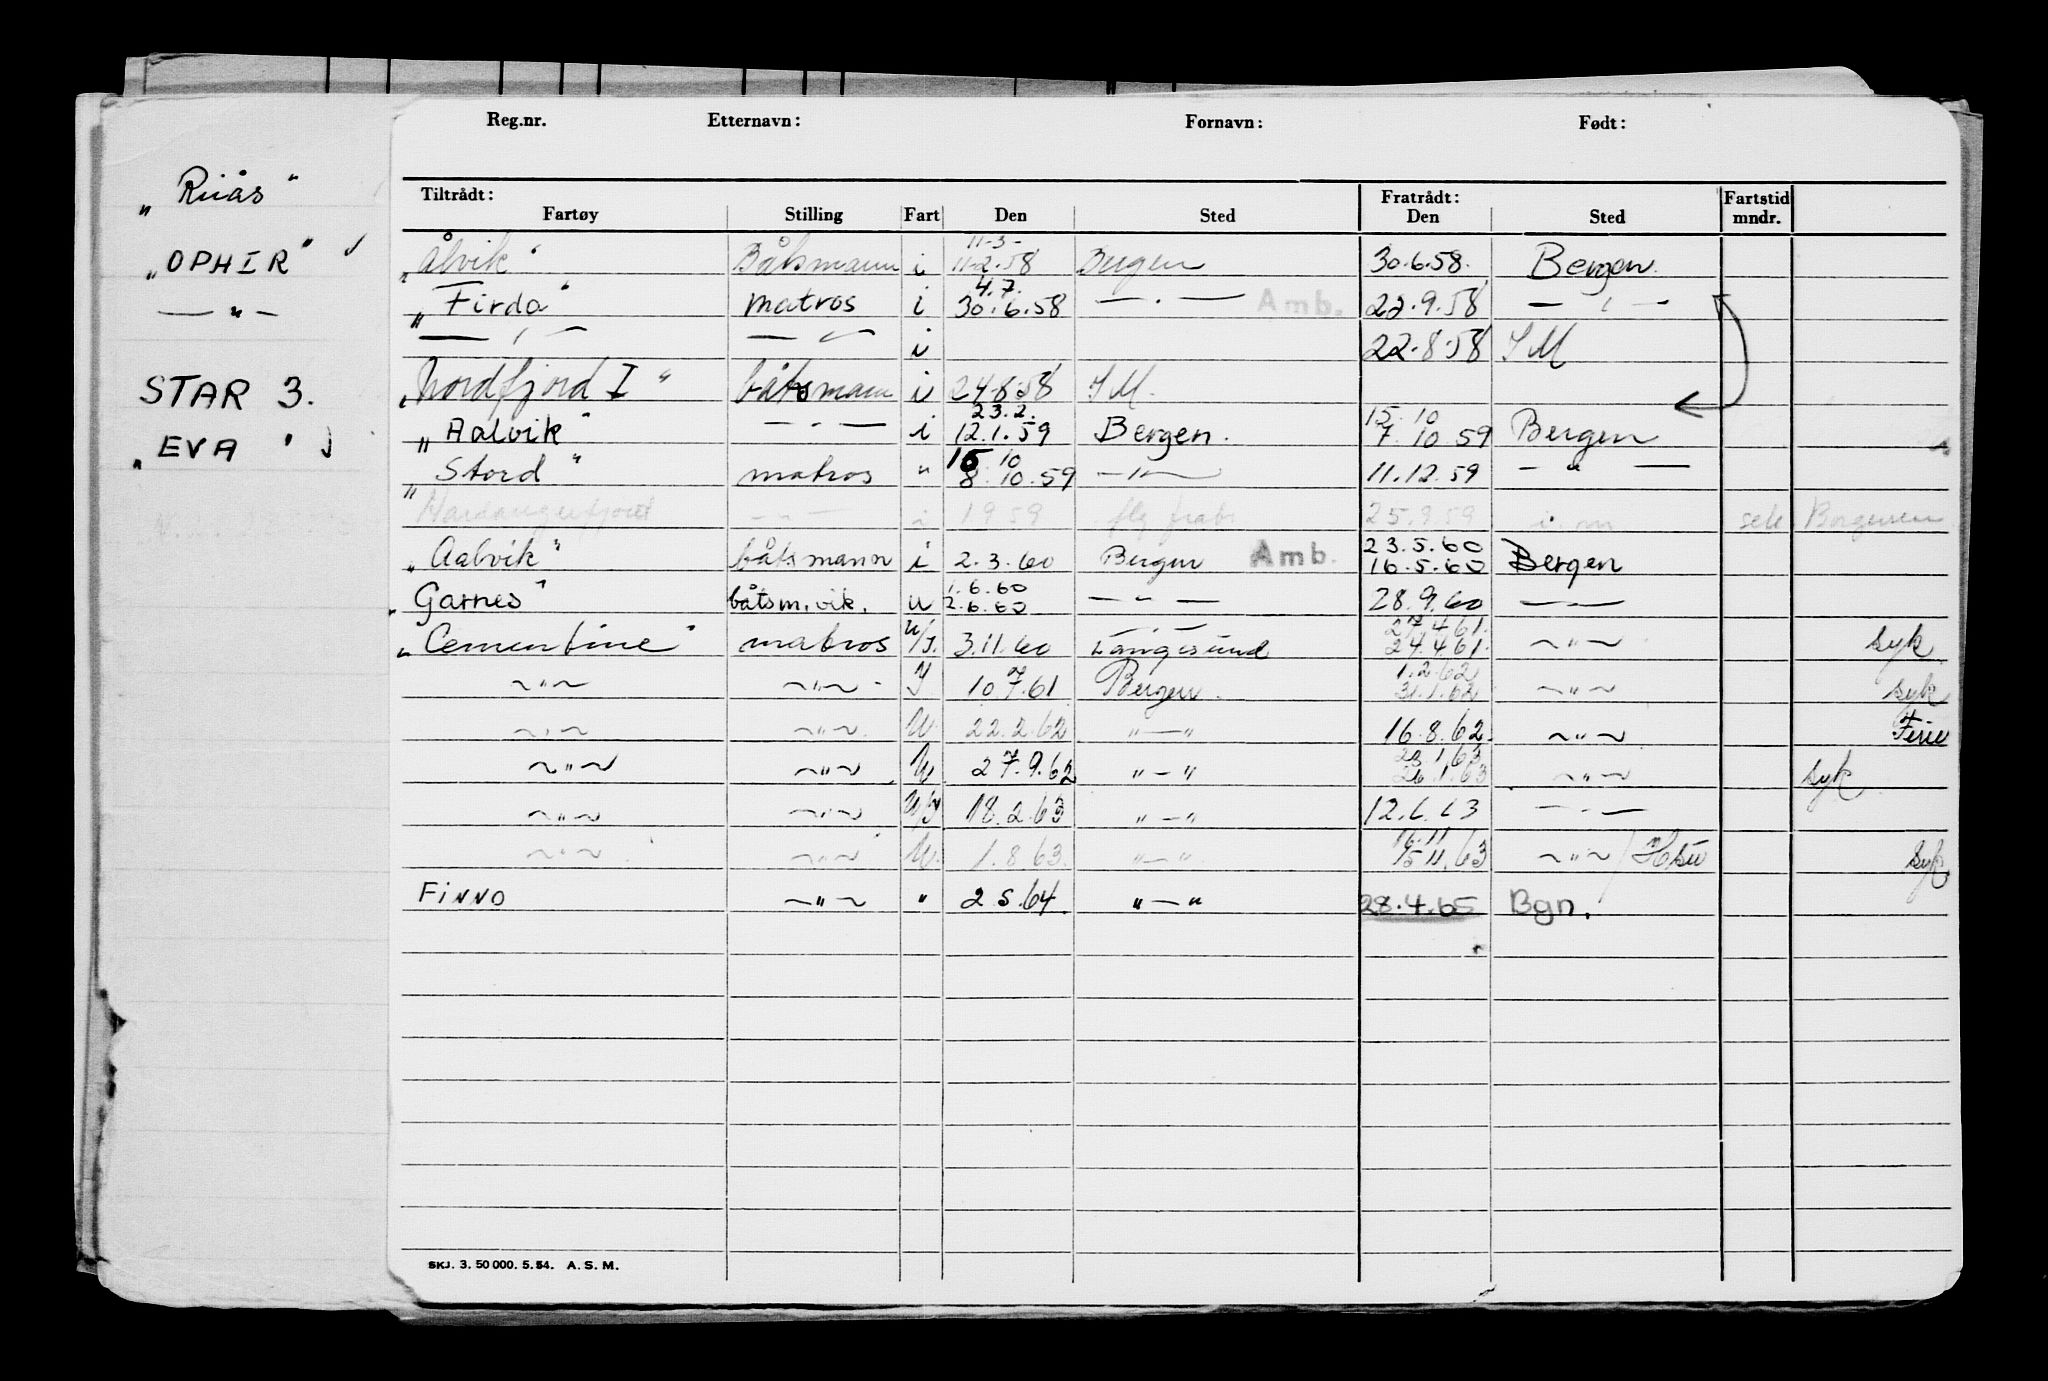 „Riiås"
„OPHIR"
— " —
STAR 3.
„EVA "
Reg.nr. Etternavn: Fornavn: Født:
Tiltrådt: Fratrådt: Fartstid
Fartøy Stilling Fart Den Sted Den Sted mndr.
11-3-
„Ålvik" Båtsmann i 11-2.58 Bergen 30.6.58. Bergen.
4.7.
„Firda" matros i 30.6.58 — . — Amb. 22.9.58 — , —
— , — — " — i 22.8.58 IM
„Nordfjord I" båtsmann i 24.8.58 IM.
23.2. 15 10
„Aalvik" — . — i 12.1.59 Bergen. 7 10 59 Bergen
15 10
„Stord" matros " 8.10.59 — " — 11.12.59 — " —
Hardangerfjord — " — i 1959 25.9.59 i.m Borgersen
23.5.60
„Aalvik" båtsmann i 2.3.60 Bergen Amb. 16.5.60 Bergen
1.6.60
„Garnes" båtsm.vik. u 2.6.60 — " — 28.9.60 — " —
27.4.61.
„Cementine" matros u/I. 3.11.60 Langesund 24.4.61. ~ " ~ syk
1.2.62
~ " ~ ~ " ~ I 10.7.61 Bergen. 31.1.62 ~ " ~ syk
~ " ~ ~ " ~ U 22.2.62 " — " 16.8.62. ~ " ~ Ferie
28.1.63
~ " ~ ~ " ~ U 27.9.62 " — " 26.1.63 ~ " ~ syk
~ " ~ ~ " ~ U/I 18.2.63 " — " 12.6.63 — . —
16.11
~ " ~ ~ " ~ U. 1.8.63. " — " 15.11.63 ~ " ~ / syk
FiNNO ~ " ~ " 2.5.64. " — " 28.4.65 Bgn.
SKJ. 3. 50 000. 5. 54. A. S. M.